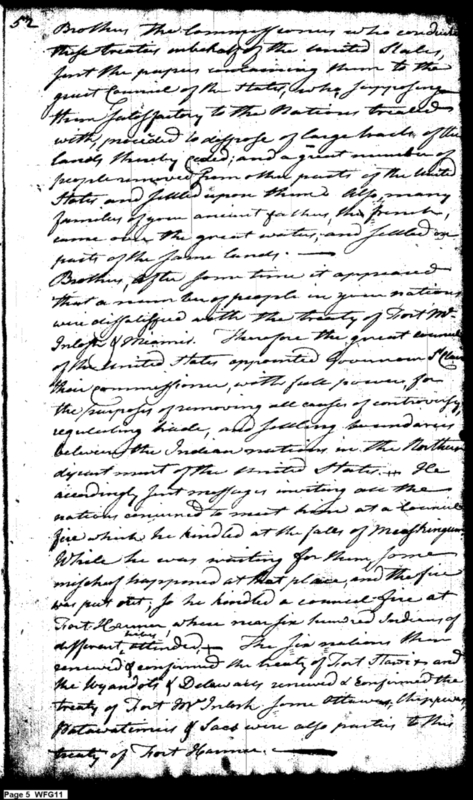 52
Brothers the Commissioners who conducted
these treaties in behalf of the United States,
sent the papers containing them to the
great Council of the States, who supposing
them satisfactory to the Nations treated
with, proceeded to dispose of large tracts of the
lands thereby ceded; and a great number of
people removed from other parts of the United
States and settled upon them: Also, many
families of your ancient fathers, the french,
came over the great waters, and settled on
parts of the same lands. —
Brothers, After some time it appeared
that a number of people in your nations
were dissatisfied with the treaty of Fort Mc
Intosh & Miamis. Therefore the great council
of the United States appointed Governor St Clair
their commissioner, with full power, for
the purposes of removing all causes of controversy,
regulating trade, and settling boundaries
between the Indian nations in the Northern
district ment of the United States. He
accordingly sent messages inviting all the
nations concerned to meet him at a Council
fire which he kindled at the falls of Muskingum
While he was waiting for them, some
mischief happened at that place, and the fire
was put out; so he kindled a council fire at
Fort Harmar where near six hundred Indians of
different tribes attended. The six nations then
renewed & confirmed the treaty of Fort Stanwix and
the Wyandots & Delawares renewed & confirmed the
treaty of Fort Mc Intosh some Ottawas, Chippewas
Patawatimies & Sacs were also parties to this
treaty of Fort Harmar. —
Page 5 WFG11